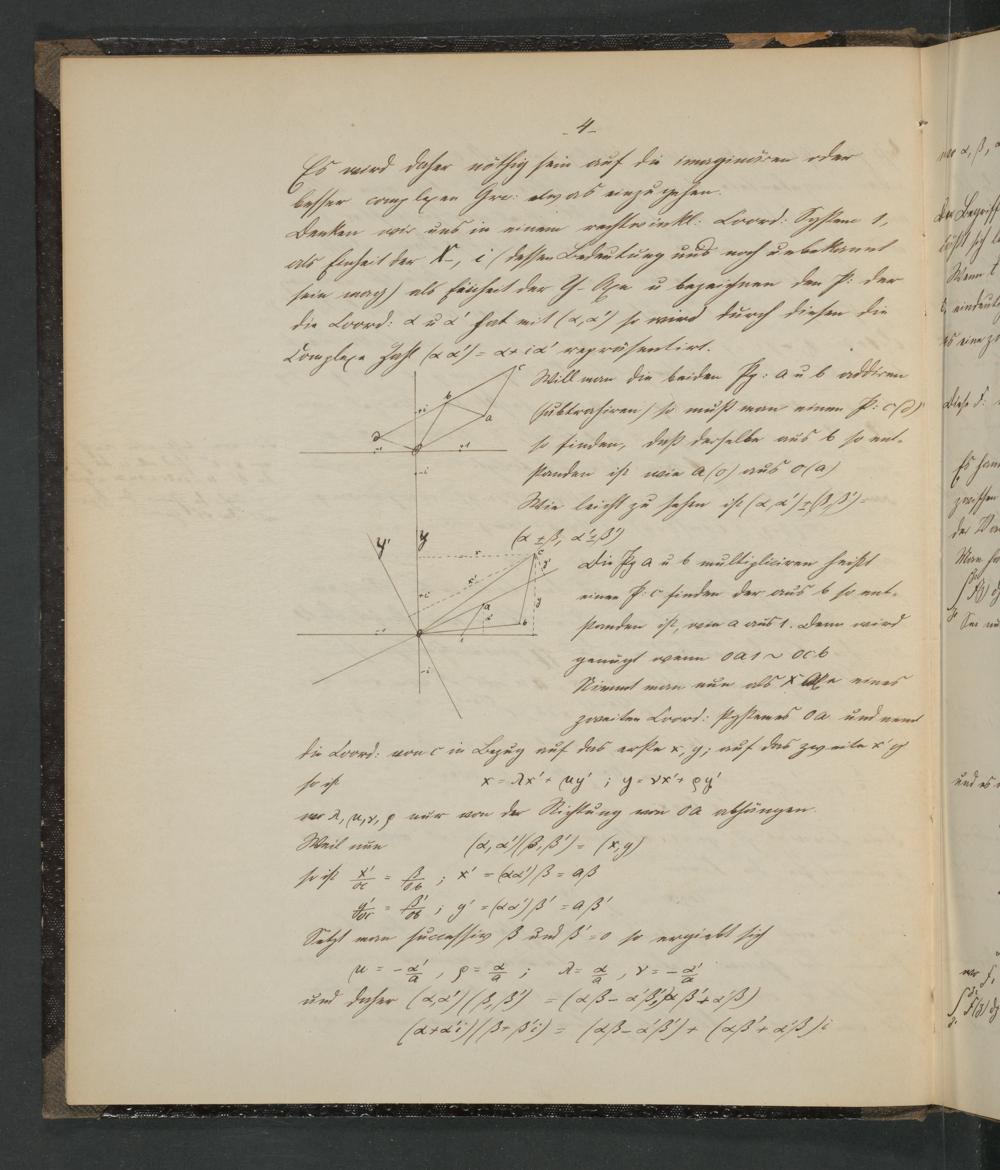 -4-
Es wird daher nöthig sein auf die imaginären oder
besser complexen Grö: etwas einzugehen.
Denken wir uns in einem rechtwinkl: Coord: System 1,
als Einheit der X-, i (dessen Bedeutung uns noch unbekannt
sein mag) als Einheit der Y-Axe u bezeichnen den P: der
die Coord: α u α' hat mit (α,α') so wird durch diesen die
Complexe Zahl (α α') = α+iα' repräsentirt.
Will man die beiden Pg: a u b addiren
(subtrahiren) so muß man einen P: c(d)
so finden, daß derselbe aus b so ent-
standen ist wie a(o) aus o(a)
Wie leicht zu sehen ist (α,α')±(β,β')=
(α±β, α'±β')
Die Pg a u b multipliciren heißt
einen P: c finden der aus b so ent-
standen ist, wie a aus 1. Dem wird
genügt wenn oa1 ~ ocb
Nimmt man nun als X Axe eines
zweiten Coord: Systemes oa und nennt
die Coord: von c in Bezug auf das erste x, y; auf das zweite x' y'
so ist x = λx' + μy' ; y = νx' + ρy'
wo λ, μ, ν, ρ nur von der Richtung von oa abhängen.
Weil nun (α,α')(β,β') = (x,y)
so ist x'/oc = β/ob ; x' = (αα')β = aβ
y'/oc = β'/ob ; y' = (αα')β' = aβ'
Setzt man successiv β und β' = o so ergiebt sich
μ = -α'/a , ρ = α/a ; λ = α/a , ν = -α'/a
und daher (α,α')(β,β') = (αβ-α'β', αβ'+α'β)
(α+α'i)(β+β'i) = (αβ-α'β') + (αβ'+α'β)i